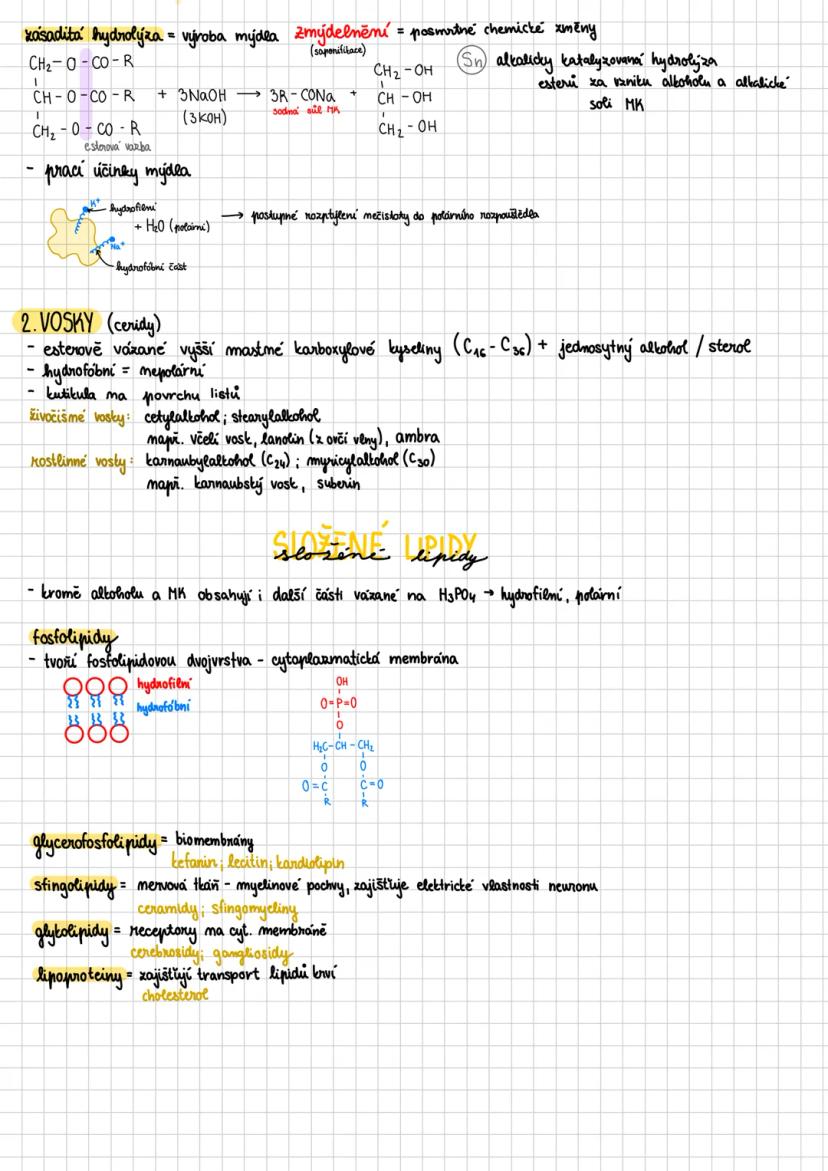 zásaditá hydrolýza = výroba mýdla zmýdelnění = posmrtné chemické změny
(saponifikace)
CH₂ - O - CO - R
CH - O - CO - R + 3NaOH → 3R - CONa + CH₂ - OH
CH₂ - O - CO - R (3KOH) sodná sůl MK CH - OH
esterová vazba CH₂ - OH
Sn alkalicky katalyzovaná hydrolýza
esterů za vzniku alkoholu a alkalické
soli MK
- prací účinky mýdla
K+ hydrofilní
+ H₂O (polární) → postupné rozptýlení nečistoty do polárního rozpouštědla
Na+
hydrofóbní část
2. VOSKY (ceridy)
- esterově vázané vyšší mastné karboxylové kyseliny (C₁₆ - C₃₆) + jednosytný alkohol / sterol
- hydrofóbní = nepolární
- kutikula na povrchu listů
živočišné vosky: cetylalkohol; stearylalkohol
např. včelí vosk, lanolin (z ovčí vlny), ambra
rostlinné vosky: karnaubylalkohol (C₂₄); myricylalkohol (C₃₀)
např. karnaubský vosk, suberin
SLOŽENÉ LIPIDY
složené lipidy
- kromě alkoholu a MK obsahují i další části vázané na H₃PO₄ → hydrofilní, polární
fosfolipidy
- tvoří fosfolipidovou dvojvrstva - cytoplazmatická membrána
hydrofilní
hydrofóbní
OH
O=P=O
O
H₂C - CH - CH₂
O O
O=C C=O
R R
glycerofosfolipidy = biomembrány
kefanin; lecitin; kardiolipin
sfingolipidy = nervová tkáň - myelinové pochvy, zajišťuje elektrické vlastnosti neuronu
ceramidy; sfingomyeliny
glykolipidy = receptory na cyt. membráně
cerebrosidy; gangliosidy
lipoproteiny = zajišťují transport lipidů krví
cholesterol